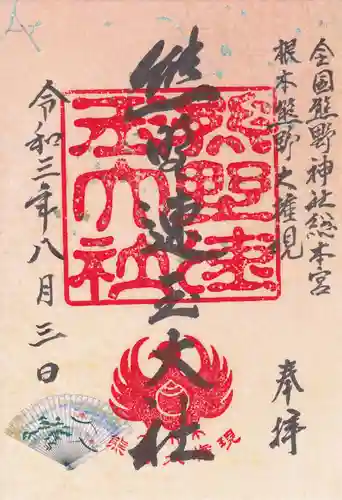 全国熊野神社総本宮
根本熊野大権現
奉拝
熊野速玉大社
熊野速玉大社
令和三年八月三日